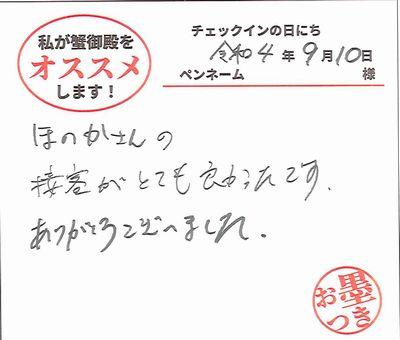 私が蟹御殿を
オススメ
します！
チェックインの日にち
令和4年9月10日
ペンネーム 様
ほのかさんの
接客がとても良かったです.
ありがとうございました.
お墨つき